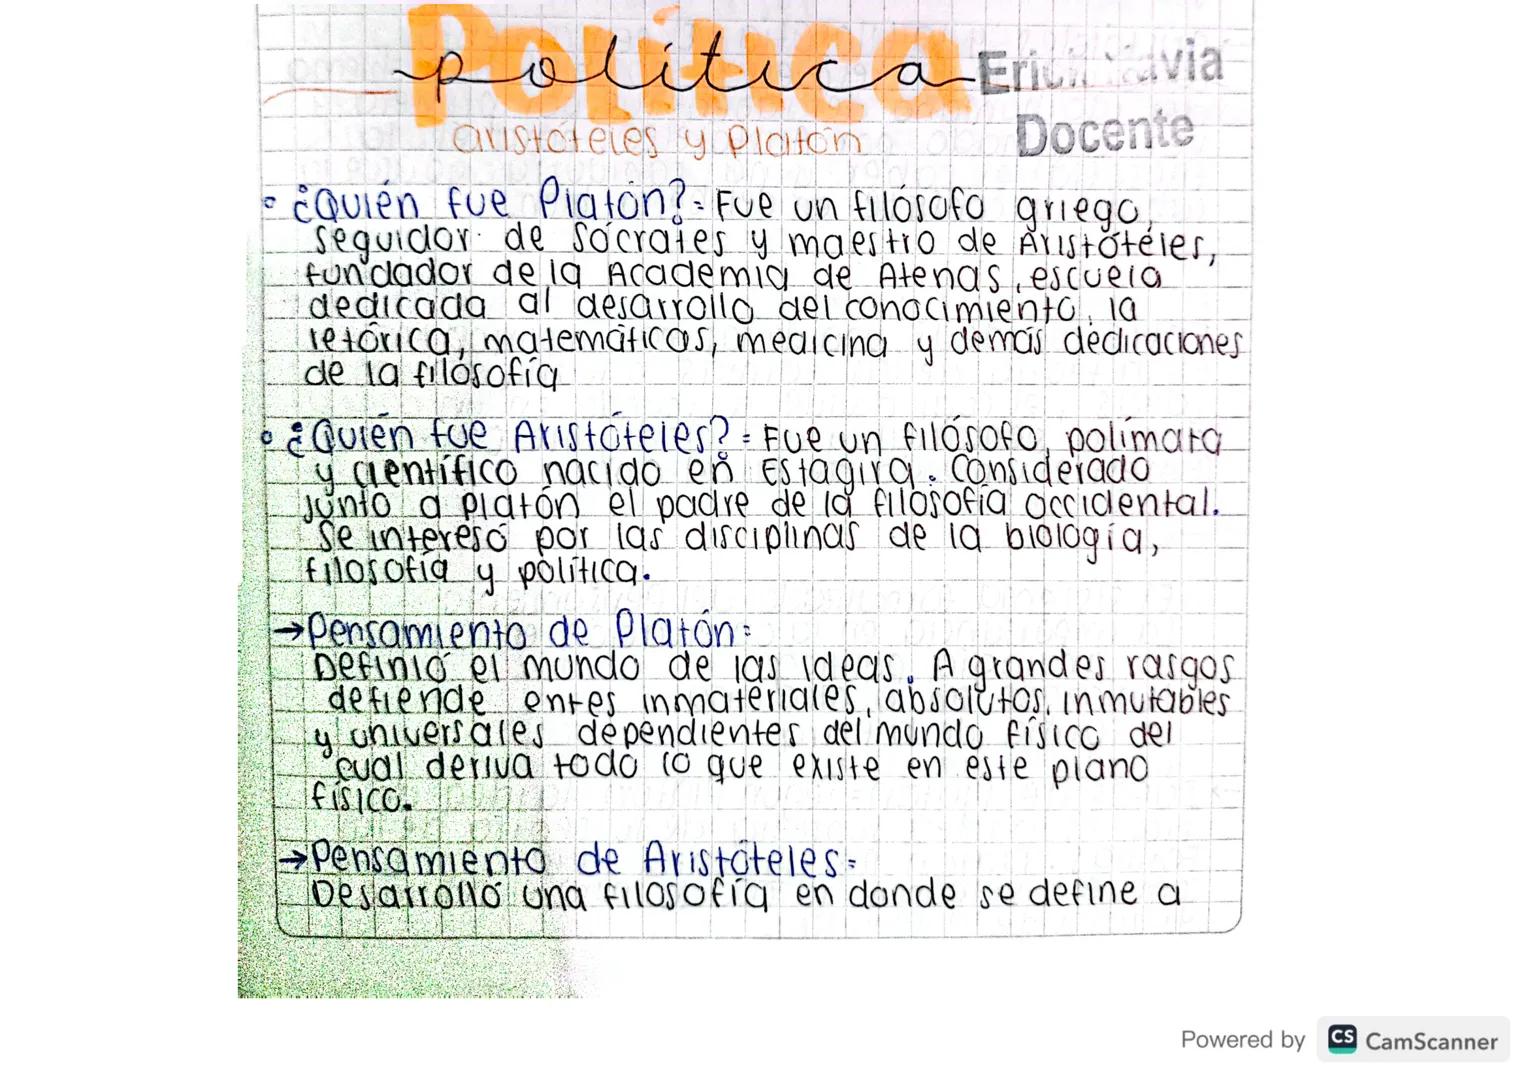 Política
política
Docente
aristóteles y Platón
¿Quién fue Platón?: Fue un filósofo griego,
seguidor de Sócrates y maestro de Aristóteles,
fundador de la Academia de Atenas, escuela
dedicada al desarrollo del conocimiento, la
retórica, matemáticas, medicina y demás dedicaciones
de la filosofía
¿Quién fue Aristóteles?: Fue un filósofo, polímata
y científico nacido en Estagira. Considerado
junto a platón el padre de la filosofía occidental.
Se interesó por las disciplinas de la biología,
filosofía y política.
→Pensamiento de Platón:
Definió el mundo de las ideas. A grandes rasgos
defiende entes inmateriales, absolutos, inmutables
y universales dependientes del mundo físico del
cual deriva todo lo que existe en este plano
físico.
→Pensamiento de Aristóteles:
Desarrolló una filosofía en donde se define a
Powered by CS CamScanner